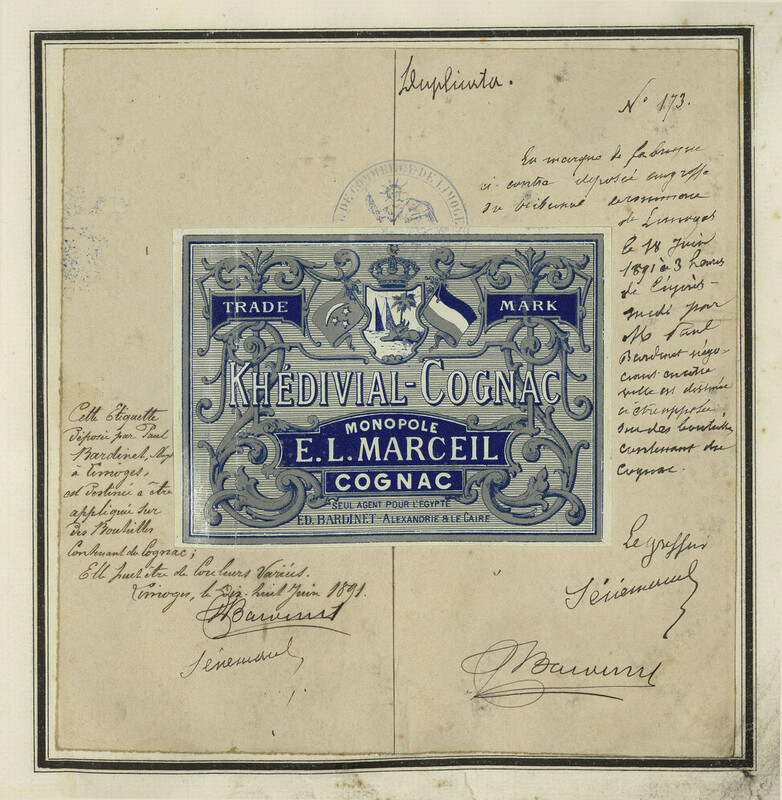 Duplicata.
N° 173.
La marque de fabrique
ci contre déposée au greffe
du tribunal de commerce
de Limoges
le 18 Juin
1891 à 3 heures
de l'après-
midi par
M. Paul
Bardinet négo-
ciant en cette
ville est destinée
à être apposée
sur des bouteilles
contenant du
Cognac.
Le greffier
L DE COMMERCE DE LIMOGES
TRADE MARK
KHÉDIVIAL-COGNAC
MONOPOLE
E.L. MARCEIL
COGNAC
SEUL AGENT POUR L'EGYPTE
ED. BARDINET-ALEXANDRIE & LE CAIRE
Cette Etiquette
Déposée par Paul
Bardinet,
à Limoges,
est Destinée à être
appliquée sur
des Bouteilles
Contenant du Cognac;
Elle peut être de Couleurs Variées.
Limoges, le Dix-huit Juin 1891.